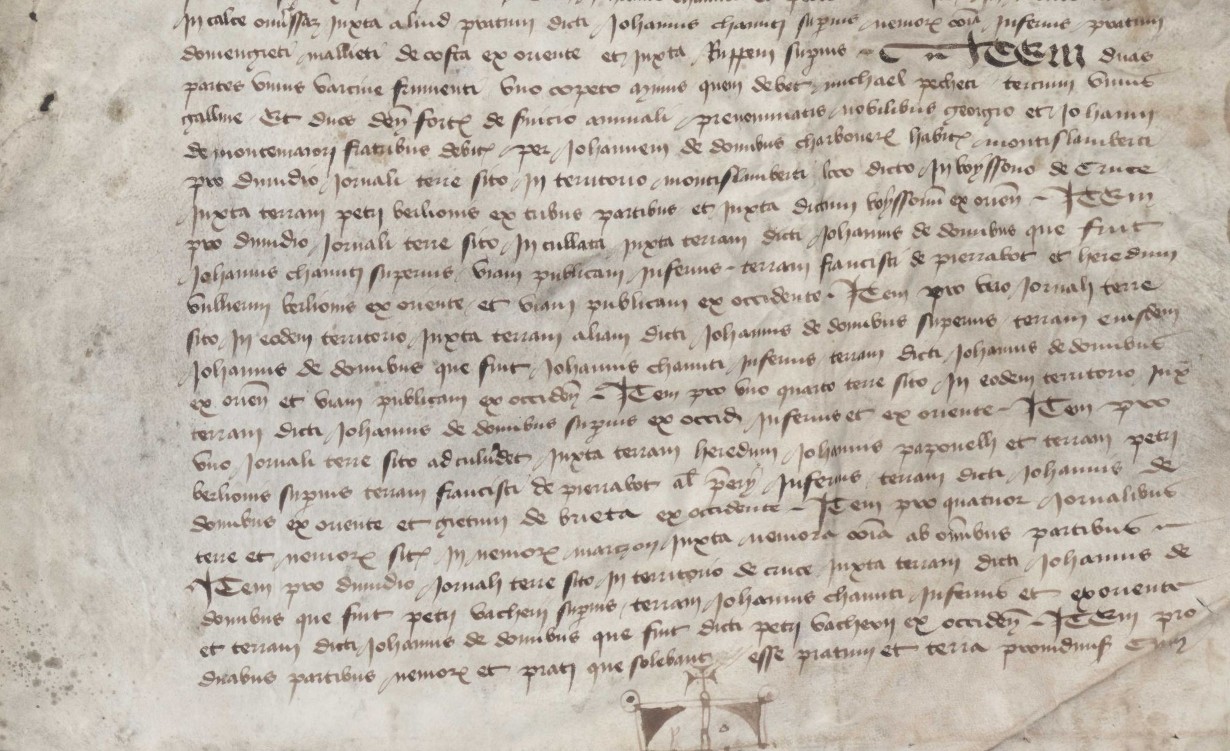 In calce omissaz Juxta aliud pratum dicti Johannis chamiti supius nemorx coia Inferius pratum
domengieti mallieti de costa ex oriente et Juxta Ruppem supius ITEM duas
partes unius varcine frumenti uno copeto mynus quem debet michael pecheti tercium unius
galline Et duos deny fortx de servicio annuali prenominatis nobilibus georgio et Johanni
de montemaiori fratribus debitx per Johannem de domibus charbonerx habitx montislamberti
pro dimidio Jornali terre sito In territorio montislamberti loco dicto In voyssono de Cruce
Juxta terram petri berlionis ex tribus partibus et Juxta dictum voyssonum ex orien ITEm
pro dimidio Jornali terre sito In cullata Juxta terram dicti Johannis de domibus que fuit
Johannis chamiti superius viam publicam Inferius terram francisci de pierrabot et heredum
vullierm berlionis ex oriente et viam publicam ex occidente ITem pro uno Jornali terre
sito In eodem territorio Juxta terram aliam dicti Johannis de domibus superius terram eiusdem
Johannis de domibus que fuit Johannis chamiti Inferius terram dicti Johannis de domibus
ex orien et viam publicam ex occiden ITem pro uno quarto terre sito In eodem territorio Juxª
terram dicti Johannis de domibus supius ex occid Inferius et ex oriente ITem pro
uno Jornali terre sito ad Juxta terram heredum Johannis paponelli et terram petri
berlionis supius terram francisci de pierrabot al pery Inferius terram dicti Johannis de
domibus ex oriente et gietum de brieta ex occidente ITem pro quatuor Jornalibus
terre et nemorx sitx In nemorx marczon Juxta nemora coia ab omibus partibus
ITem pro dimidio Jornali terre sito In territorio de cruce Juxta terram dicti Johannis de
domibus que fuit petri vacheri supius terram Johannis chamiti Inferius et ex oriente
et terram dicti Johannis de domibus que fuit dicti petri vacherii ex occiden ITEm pro
duabus partibus nemorx et prati que solebant esse pratum et terra Cum